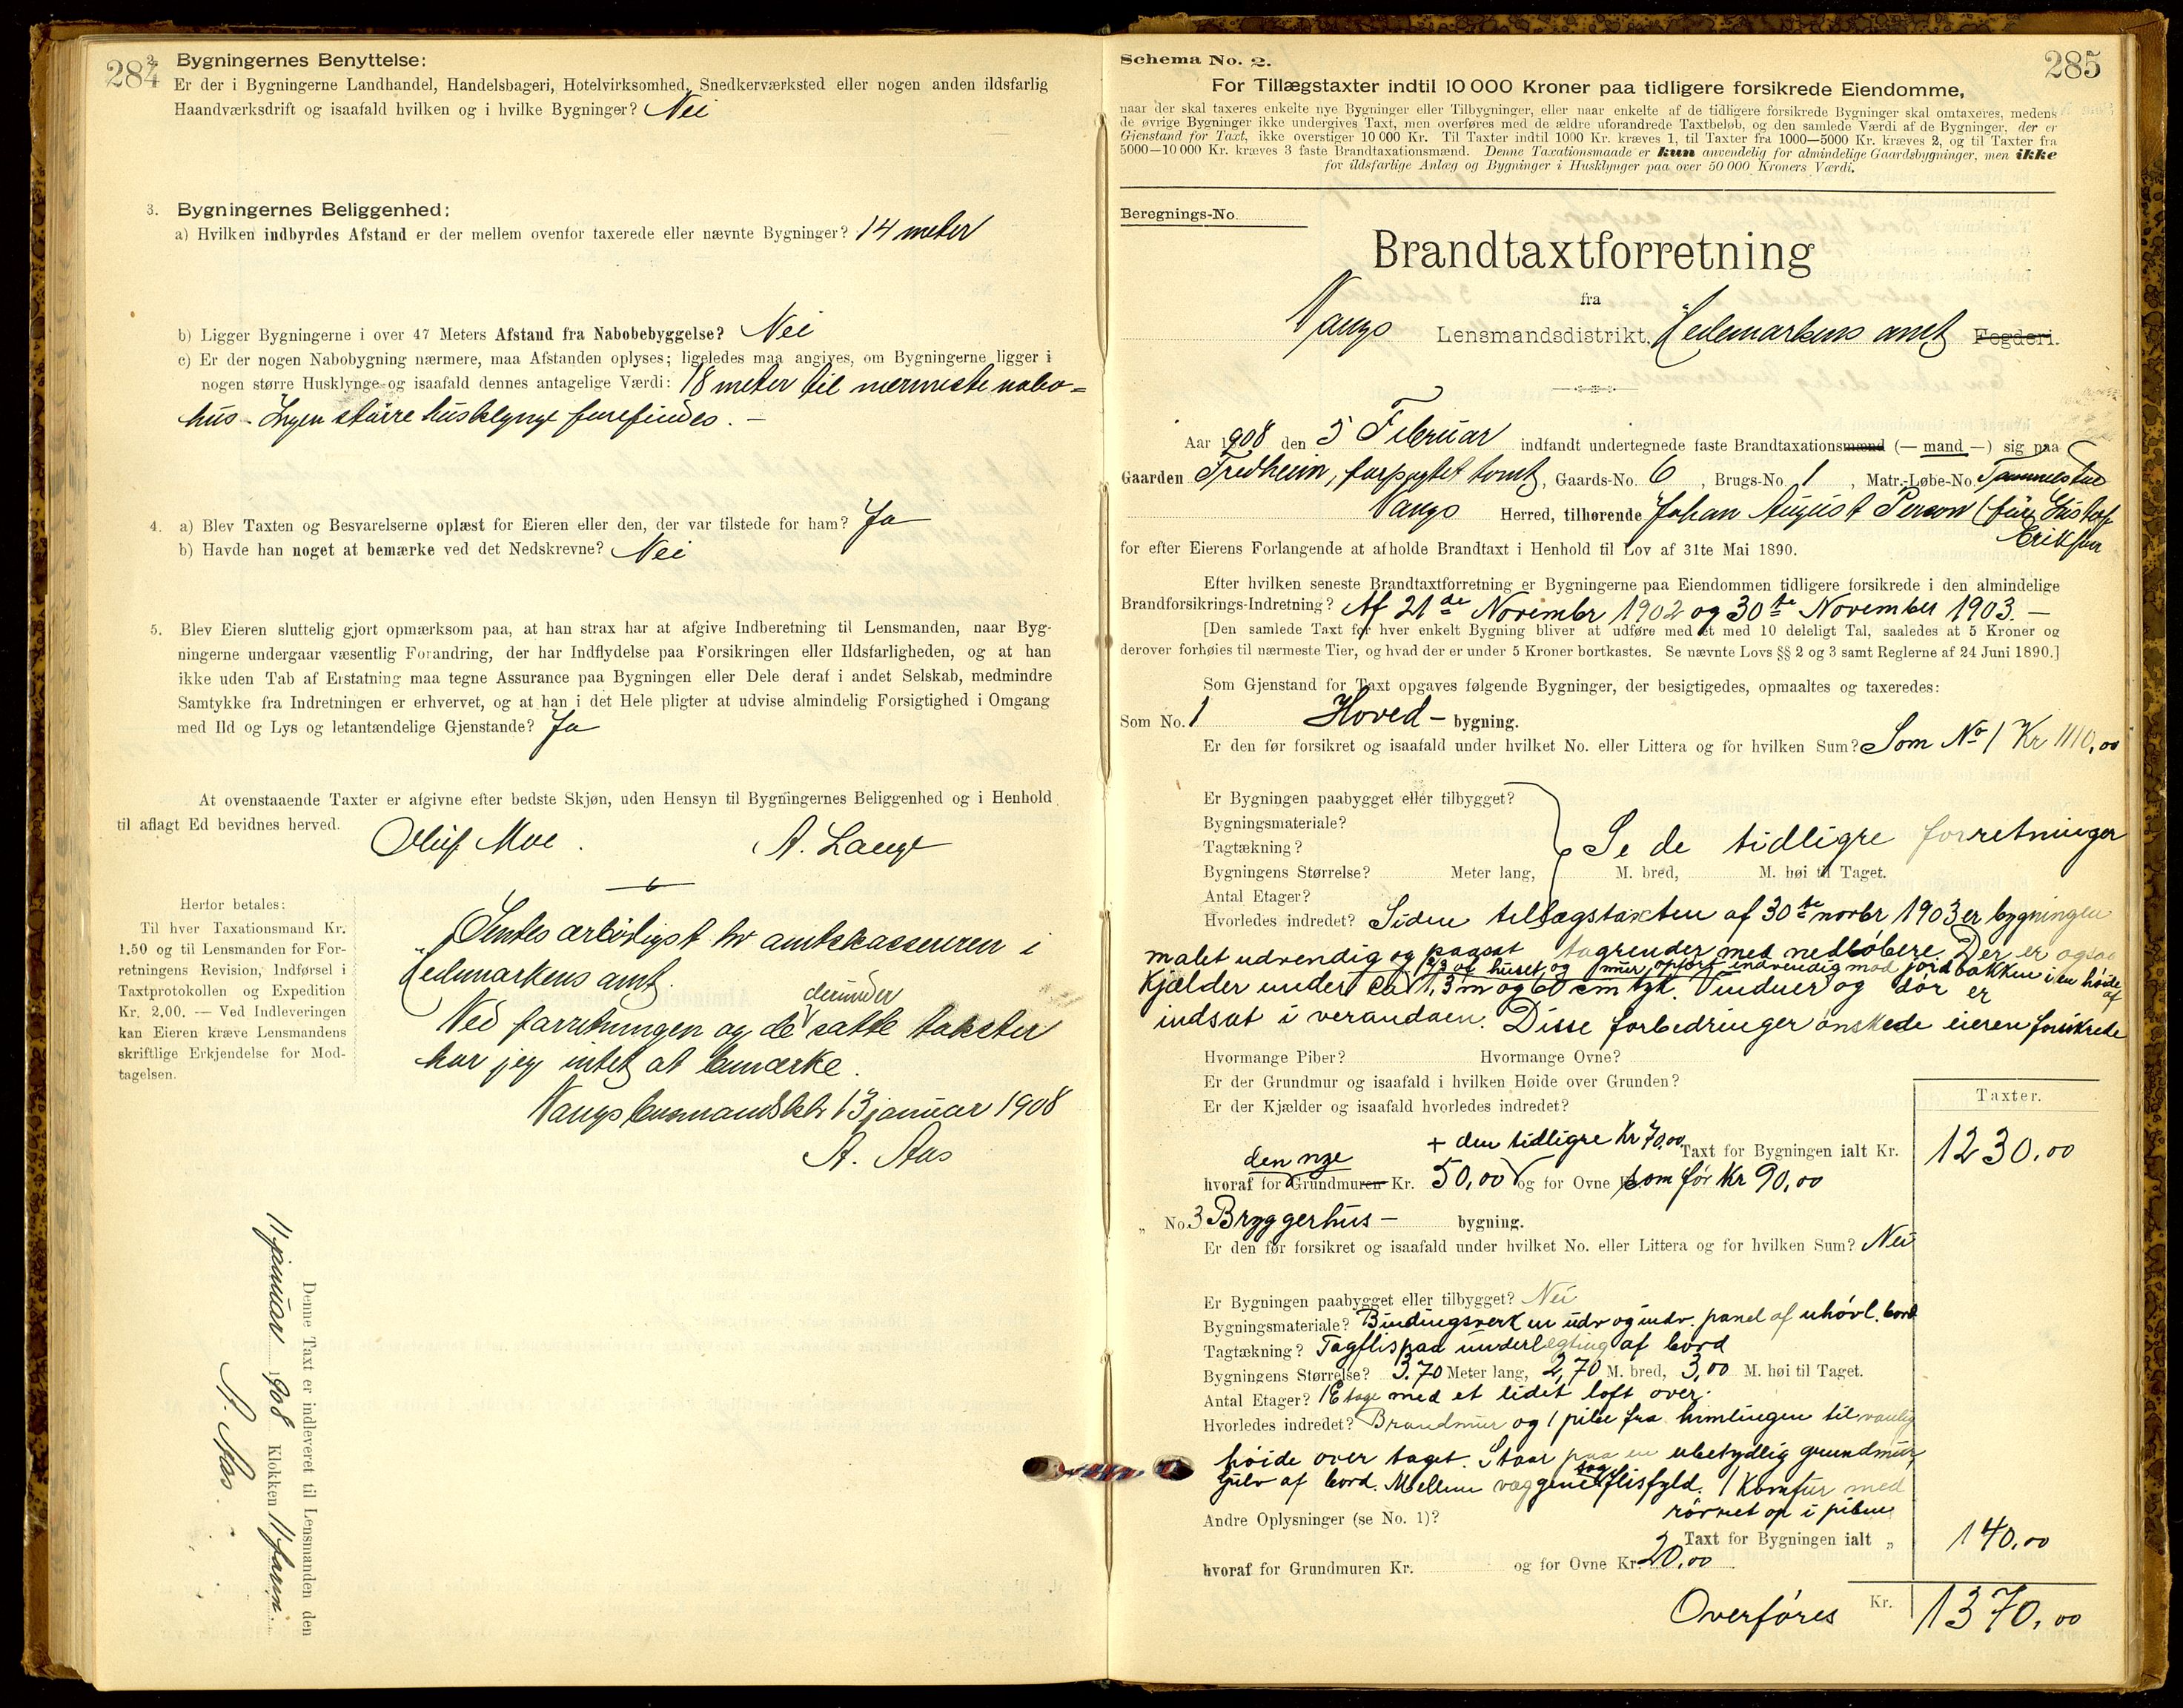 284
2. Bygningernes Benyttelse:
Er der i Bygningerne Landhandel, Handelsbageri, Hotelvirksomhed, Snedkerværksted eller nogen anden ildsfarlig
Haandværksdrift og isaafald hvilken og i hvilke Bygninger? Nei
3. Bygningernes Beliggenhed:
a) Hvilken indbyrdes Afstand er der mellem ovenfor taxerede eller nævnte Bygninger? 14 meter
b) Ligger Bygningerne i over 47 Meters Afstand fra Nabobebyggelse? Nei
c) Er der nogen Nabobygning nærmere, maa Afstanden oplyses; ligeledes maa angives, om Bygningerne ligger i
nogen større Husklynge og isaafald dennes antagelige Værdi: 18 meter til nærmeste nabo=
hus - Ingen större husklynge forefindes. —
4. a) Blev Taxten og Besvarelserne oplæst for Eieren eller den, der var tilstede for ham? Ja
b) Havde han noget at bemærke ved det Nedskrevne? Nei
5. Blev Eieren sluttelig gjort opmærksom paa, at han strax har at afgive Indberetning til Lensmanden, naar Byg-
ningerne undergaar væsentlig Forandring, der har Indflydelse paa Forsikringen eller Ildsfarligheden, og at han
ikke uden Tab af Erstatning maa tegne Assurance paa Bygningen eller Dele deraf i andet Selskab, medmindre
Samtykke fra Indretningen er erhvervet, og at han i det Hele pligter at udvise almindelig Forsigtighed i Omgang
med Ild og Lys og letantændelige Gjenstande? Ja
At ovenstaaende Taxter er afgivne efter bedste Skjøn, uden Hensyn til Bygningernes Beliggenhed og i Henhold
til aflagt Ed bevidnes herved.
Oluf Moe. A. Lange
Herfor betales:
Til hver Taxationsmand Kr.
1.50 og til Lensmanden for For-
retningens Revision, Indførsel i
Taxtprotokollen og Expedition
Kr. 2.00. — Ved Indleveringen
kan Eieren kræve Lensmandens
skriftlige Erkjendelse for Mod-
tagelsen.
Sendes ærbödigst hr amtskassereren i
Hedemarkens amt.
Ved forretningen og de derunder satte takster
har jeg intet at bemærke.
Vangs lensmandsktr 13 januar 1908
A. Aas
Denne Taxt er indleveret til Lensmanden den
11 januar 1908 Klokken 11 form.
A. Aas.
285
Schema No. 2.
For Tillægstaxter indtil 10 000 Kroner paa tidligere forsikrede Eiendomme,
naar der skal taxeres enkelte nye Bygninger eller Tilbygninger, eller naar enkelte af de tidligere forsikrede Bygninger skal omtaxeres, medens
de øvrige Bygninger ikke undergives Taxt, men overføres med de ældre uforandrede Taxtbeløb, og den samlede Værdi af de Bygninger, der er
Gjenstand for Taxt, ikke overstiger 10 000 Kr. Til Taxter indtil 1000 Kr. kræves 1, til Taxter fra 1000—5000 Kr. kræves 2, og til Taxter fra
5000—10 000 Kr. kræves 3 faste Brandtaxationsmænd. Denne Taxationsmaade er kun anvendelig for almindelige Gaardsbygninger, men ikke
for ildsfarlige Anlæg og Bygninger i Husklynger paa over 50 000 Kroners Værdi.
Beregnings-No.
Brandtaxtforretning
fra
Vangs Lensmandsdistrikt, Hedemarkens amt Fogderi.
Aar 1908 den 5 Februar indfandt undertegnede faste Brandtaxationsmænd (— mand —) sig paa
Gaarden Fredheim, forpagtet tomt, Gaards-No. 6, Brugs-No. 1, Matr.-Løbe-No.
Vangs Herred, tilhørende Johan August Person (før Gustaf
Eriksen
for efter Eierens Forlangende at afholde Brandtaxt i Henhold til Lov af 31te Mai 1890.
Efter hvilken seneste Brandtaxtforretning er Bygningerne paa Eiendommen tidligere forsikrede i den almindelige
Brandforsikrings-Indretning? Af 21de Novembr 1902 og 30te November 1903. —
[Den samlede Taxt for hver enkelt Bygning bliver at udføre med et med 10 deleligt Tal, saaledes at 5 Kroner og
derover forhøies til nærmeste Tier, og hvad der er under 5 Kroner bortkastes. Se nævnte Lovs §§ 2 og 3 samt Reglerne af 24 Juni 1890.]
Som Gjenstand for Taxt opgaves følgende Bygninger, der besigtigedes, opmaaltes og taxeredes:
Som No. 1 Hoved- bygning.
Er den før forsikret og isaafald under hvilket No. eller Littera og for hvilken Sum? Som No 1 Kr 1110,00
Er Bygningen paabygget eller tilbygget?
Bygningsmateriale?
Tagtækning? Se de tidligre forretninger
Bygningens Størrelse? Meter lang, M. bred, M. høi til Taget.
Antal Etager?
Hvorledes indredet? Siden tillægstakten af 30te novbr 1903 er bygningen
malet udvendig og paasat tagrender med nedlöbere. Der er ogsaa
kjælder under 2/3 af huset, og mur opfört indvendig mod jordbakken i en höide af
ca 1,3 m og 60 cm tyk. Vinduer og dör er
indsat i verandaen. Disse forbedringer önskede eieren forsikrede
Hvormange Piber? Hvormange Ovne?
Er der Grundmur og isaafald i hvilken Høide over Grunden?
Er der Kjælder og isaafald hvorledes indredet?
Taxter.
+ den tidligre Kr 70,00 Taxt for Bygningen ialt Kr. 1230,00
den nye
hvoraf for Grundmuren Kr. 50,00 og for Ovne Kr. som før Kr 90,00
„ No. 3 Bryggerhus- bygning.
Er den før forsikret og isaafald under hvilket No. eller Littera og for hvilken Sum? Nei
Er Bygningen paabygget eller tilbygget? Nei
Bygningsmateriale? Bindingsverk m udv og indv. panel af uhövl. bord
Tagtækning? Tagflis paa underlegting af bord
Bygningens Størrelse? 3.70 Meter lang, 2,70 M. bred, 3,00 M. høi til Taget.
Antal Etager? 1 Etage med et lidet loft over.
Hvorledes indredet? Brandmur og 1 pibe fra himlingen til vanlig
höide over taget. Staar paa en ubetydlig grundmur,
gulv af bord. Mellem væggene sagflisfyld. 1 komfur med
rörret op i piben
Andre Oplysninger (se No. 1)?
Taxt for Bygningen ialt „ 140,00
hvoraf for Grundmuren Kr. og for Ovne Kr. 20,00
Overföres Kr. 1370,00